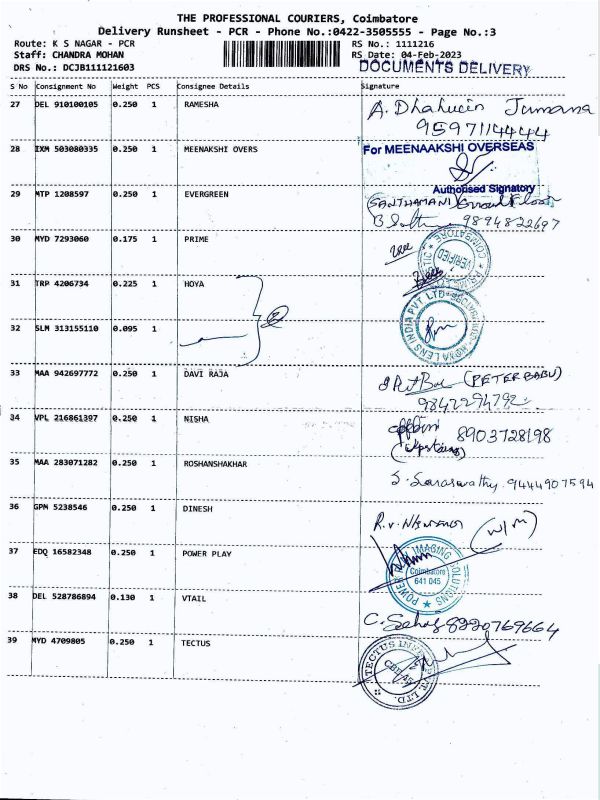 THE PROFESSIONAL COURIERS, Coimbatore
Delivery Runsheet - PCR - Phone No.:0422-3505555 - Page No.:3
Route: K S NAGAR - PCR RS No.: 1111216
Staff: CHANDRA MOHAN RS Date: 04-Feb-2023
DRS No.: DCJB111121603 DOCUMENTS DELIVERY
S No Consignment No Weight PCS Consignee Details Signature
27 DEL 910100105 0.250 1 RAMESHA A. Jumana
9597114444
28 IXM 503080335 0.250 1 MEENAKSHI OVERS For MEENAAKSHI OVERSEAS
Authorised Signatory
29 MTP 1208597 0.250 1 EVERGREEN (SANTHAMANI) Ground Floor
9894822697
30 MYD 7293060 0.175 1 PRIME
COIMBATORE
VERIFIED
31 TRP 4206734 0.225 1 HOYA
HOYA LENS INDIA PVT LTD
32 SLM 313155110 0.095 1
33 MAA 942697772 0.250 1 DAVI RAJA (PETER BABU)
9842294792
34 VPL 216861397 0.250 1 NISHA 8903728198
(upstairs)
35 MAA 283071282 0.250 1 ROSHANSHAKHAR
S. Saraswathy 9444907594
36 GPM 5238546 0.250 1 DINESH R.V. (W/M)
37 EDQ 16582348 0.250 1 POWER PLAY POWER IMAGING SOLUTIONS
Coimbatore
641 045
38 DEL 528786894 0.130 1 VTAIL
C. 8220769664
39 MYD 4709805 0.250 1 TECTUS
TECTUS LTD.
CBE-45